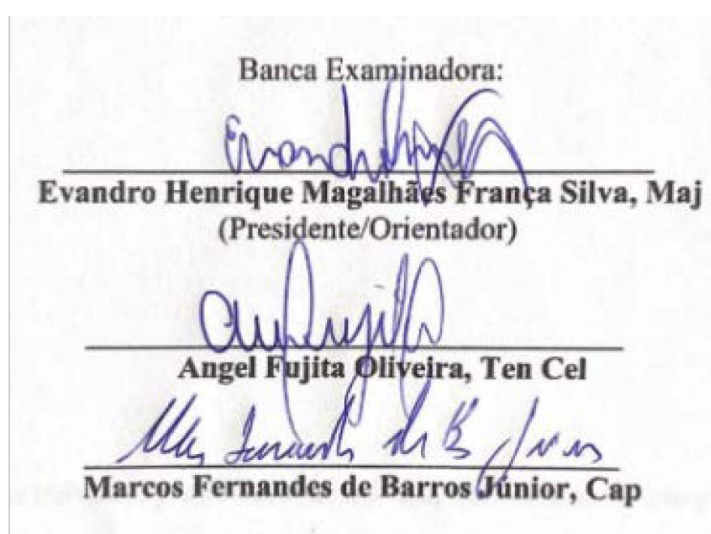 Banca Examinadora:
Evandro Henrique Magalhães França Silva, Maj
(Presidente/Orientador)
Angel Fujita Oliveira, Ten Cel
Marcos Fernandes de Barros Júnior, Cap